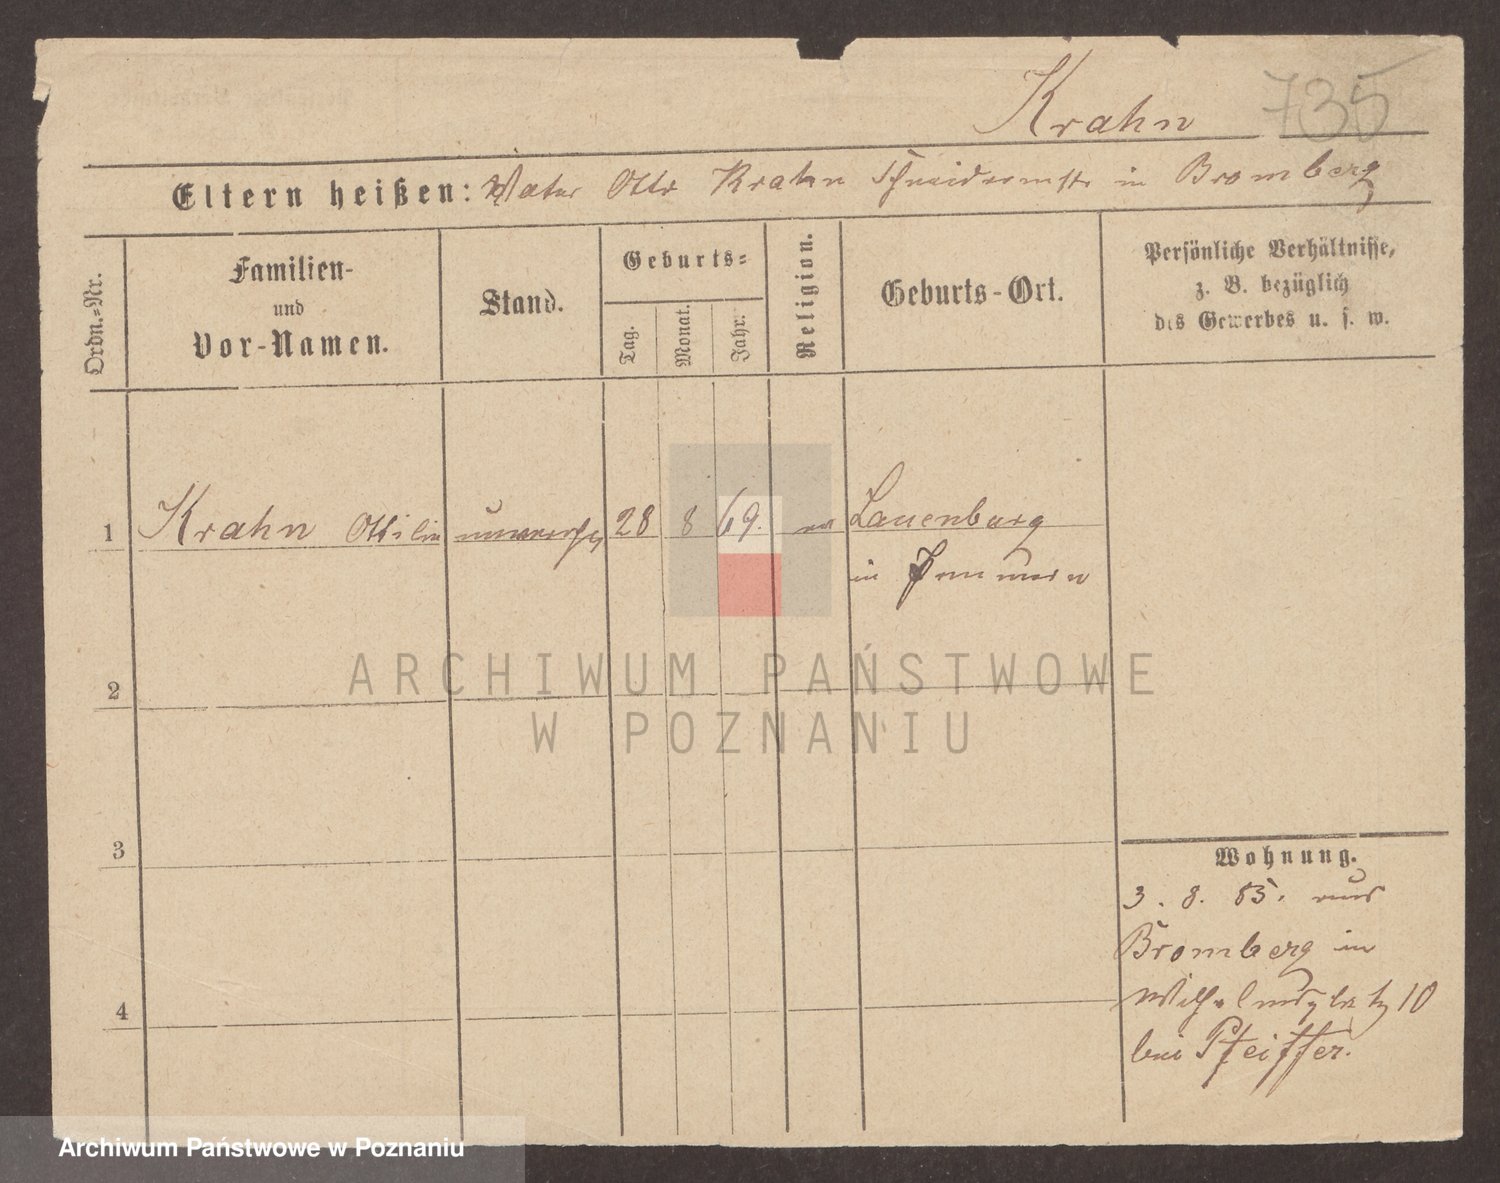 Krahn 735
Eltern heißen: Vater Otto Krahn Schneidermstr in Bromberg
Ordn.=Nr.
Familien-
und
Vor-Namen.
Stand.
Geburts=
Tag.
Monat.
Jahr.
Religion.
Geburts-Ort.
Persönliche Verhältnisse,
z. B. bezüglich
des Gewerbes u. s. w.
1 Krahn Ottilie unverh 28 8 69. ev Lauenburg
in Pommern
2
3
4
Wohnung.
3. 8. 85. aus
Bromberg in
Wilhelmsplatz 10
bei Pfeiffer.
ARCHIWUM PAŃSTWOWE
W POZNANIU
Archiwum Państwowe w Poznaniu